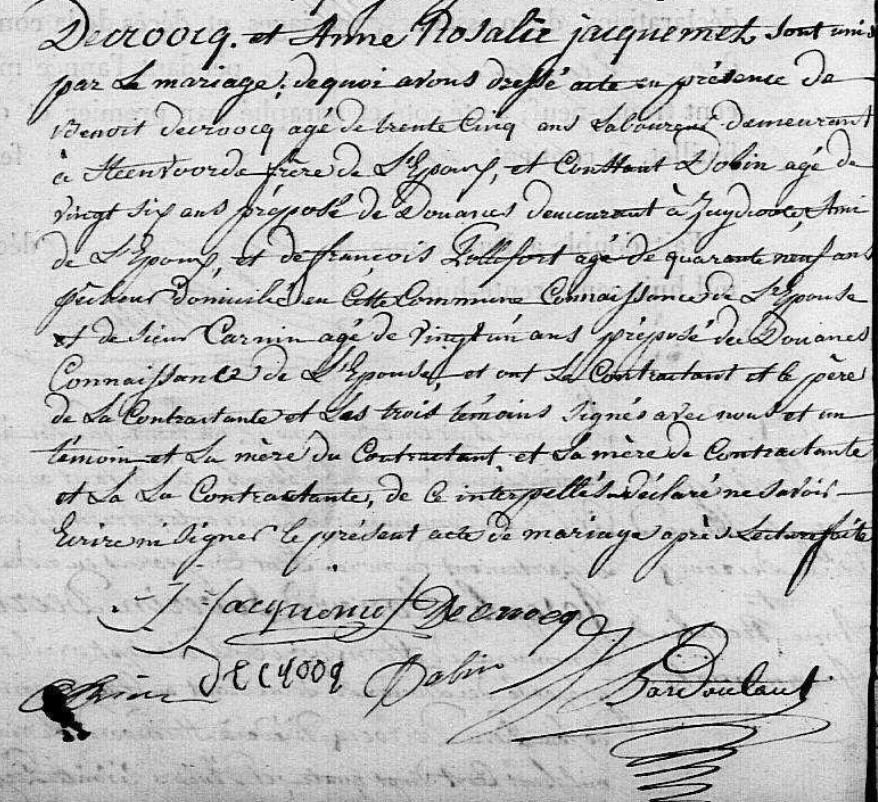 Decroocq. et Anne Rosalie jacquemet sont unis
par Le mariage; de quoi avons dressé acte en présence de
Benoit decroocq agé de trente Cinq ans Laboureur demeurant
à Steenvoorde frère de L'Epoux, et Constant Dobin agé de
vingt six ans préposé de Douanes demeurant à Zuydcoote, Ami
de L'Epoux, et de françois Tallefort agé de quarante neuf ans
pêcheur domicilié en Cette Commune Connaissance de L'Epouse
et de sieur Carnin agé de vingt un ans préposé des Douanes
Connaissance de L'Epouse, et ont Le Contractant et le père
de La Contractante et Les trois témoins signés avec nous et un
témoin et La mère du Contractant et La mère de Contractante
et La La Contractante, de ce interpellés déclaré ne savoir
Ecrire ni signer le présent acte de mariage après Lecture faite
J. Jacquemet Decroocq
decrooq Dobin